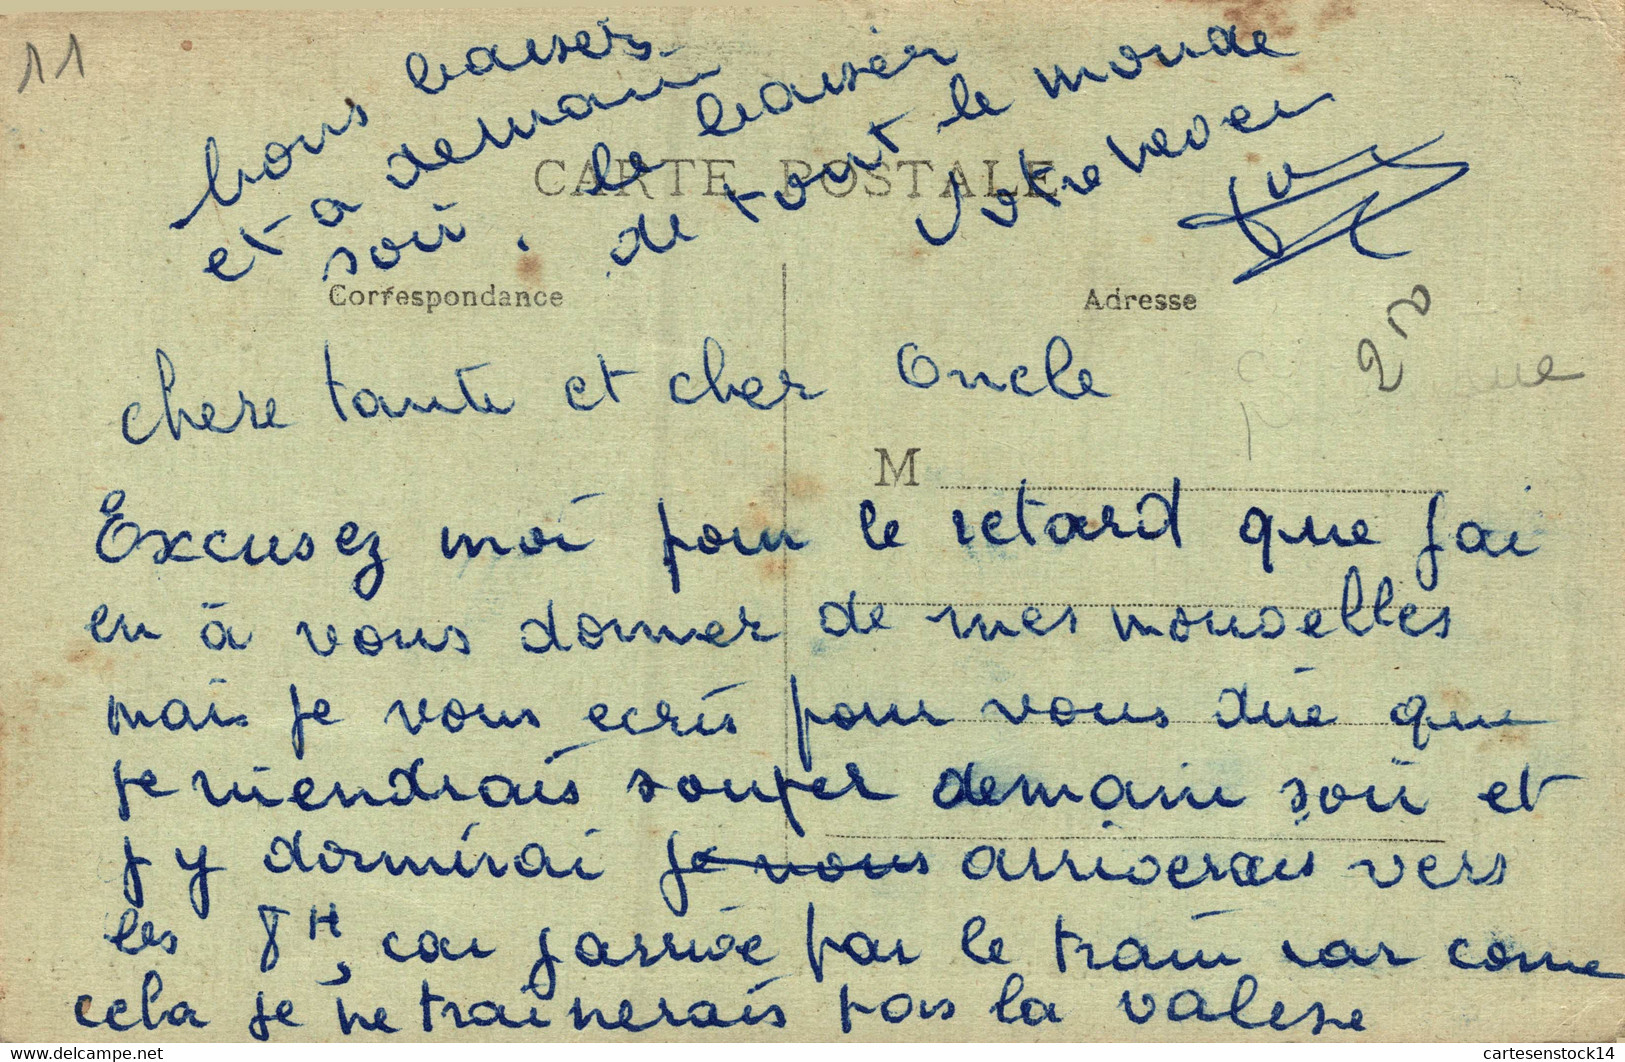 11
bons baisers
et a demain
soir. le baiser
de tout le monde
Votre neveu
CARTE POSTALE
Correspondance
Adresse
200
chere tante et cher Oncle
M
Excusez moi pour le retard que jai
eu à vous donner de mes nouvelles
mais je vous ecris pour vous dire que
je viendrais souper demain soir et
j y dormirai je vous arriverais vers
les 8H, car jarrive par le train car come
cela je ne trainerais pas la valise
www.cartesenstock.com
cartesenstock14